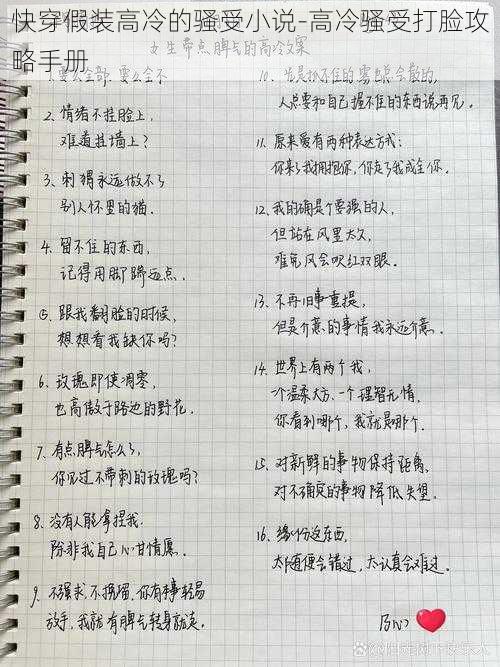 快穿假装高冷的骚受小说-高冷骚受打脸攻
略手册
女生带点脾气的高冷文案
1.要么全部，要么全不
2.情绪不挂脸上，
难道挂墙上？
3.刺猬永远做不了
别人怀里的猫．
4.留不住的东西，
记得用脚踢远点．
5.跟我翻脸的时候，
想想看我缺你吗？
6.玫瑰即使凋零，
也高傲于路边的野花．
7.有点脾气怎么了，
你见过不带刺的玫瑰吗？
8.没有人能拿捏我．
除非我自己心甘情愿．
9.不强求，不挽留，你有本事轻易
放手，我就有脾气转身就走．
10.
人总要和自己握不住的东西说再见．
11.原来爱有两种表达方式：
你来了我拥抱你，你走了我成全你．
12.我的确是个要强的人，
但站在风里太久，
难免风会吹红双眼．
13.不再旧事重提，
但是介意的事情我永远介意．
14.世界上有两个我，
一个温柔大方，一个理智无情．
你看到哪个，我就是哪个．
15.对新鲜的事物保持距离，
对不确定的事物降低失望．
16.缘份这东西，
太随便会错过，太认真会难过．